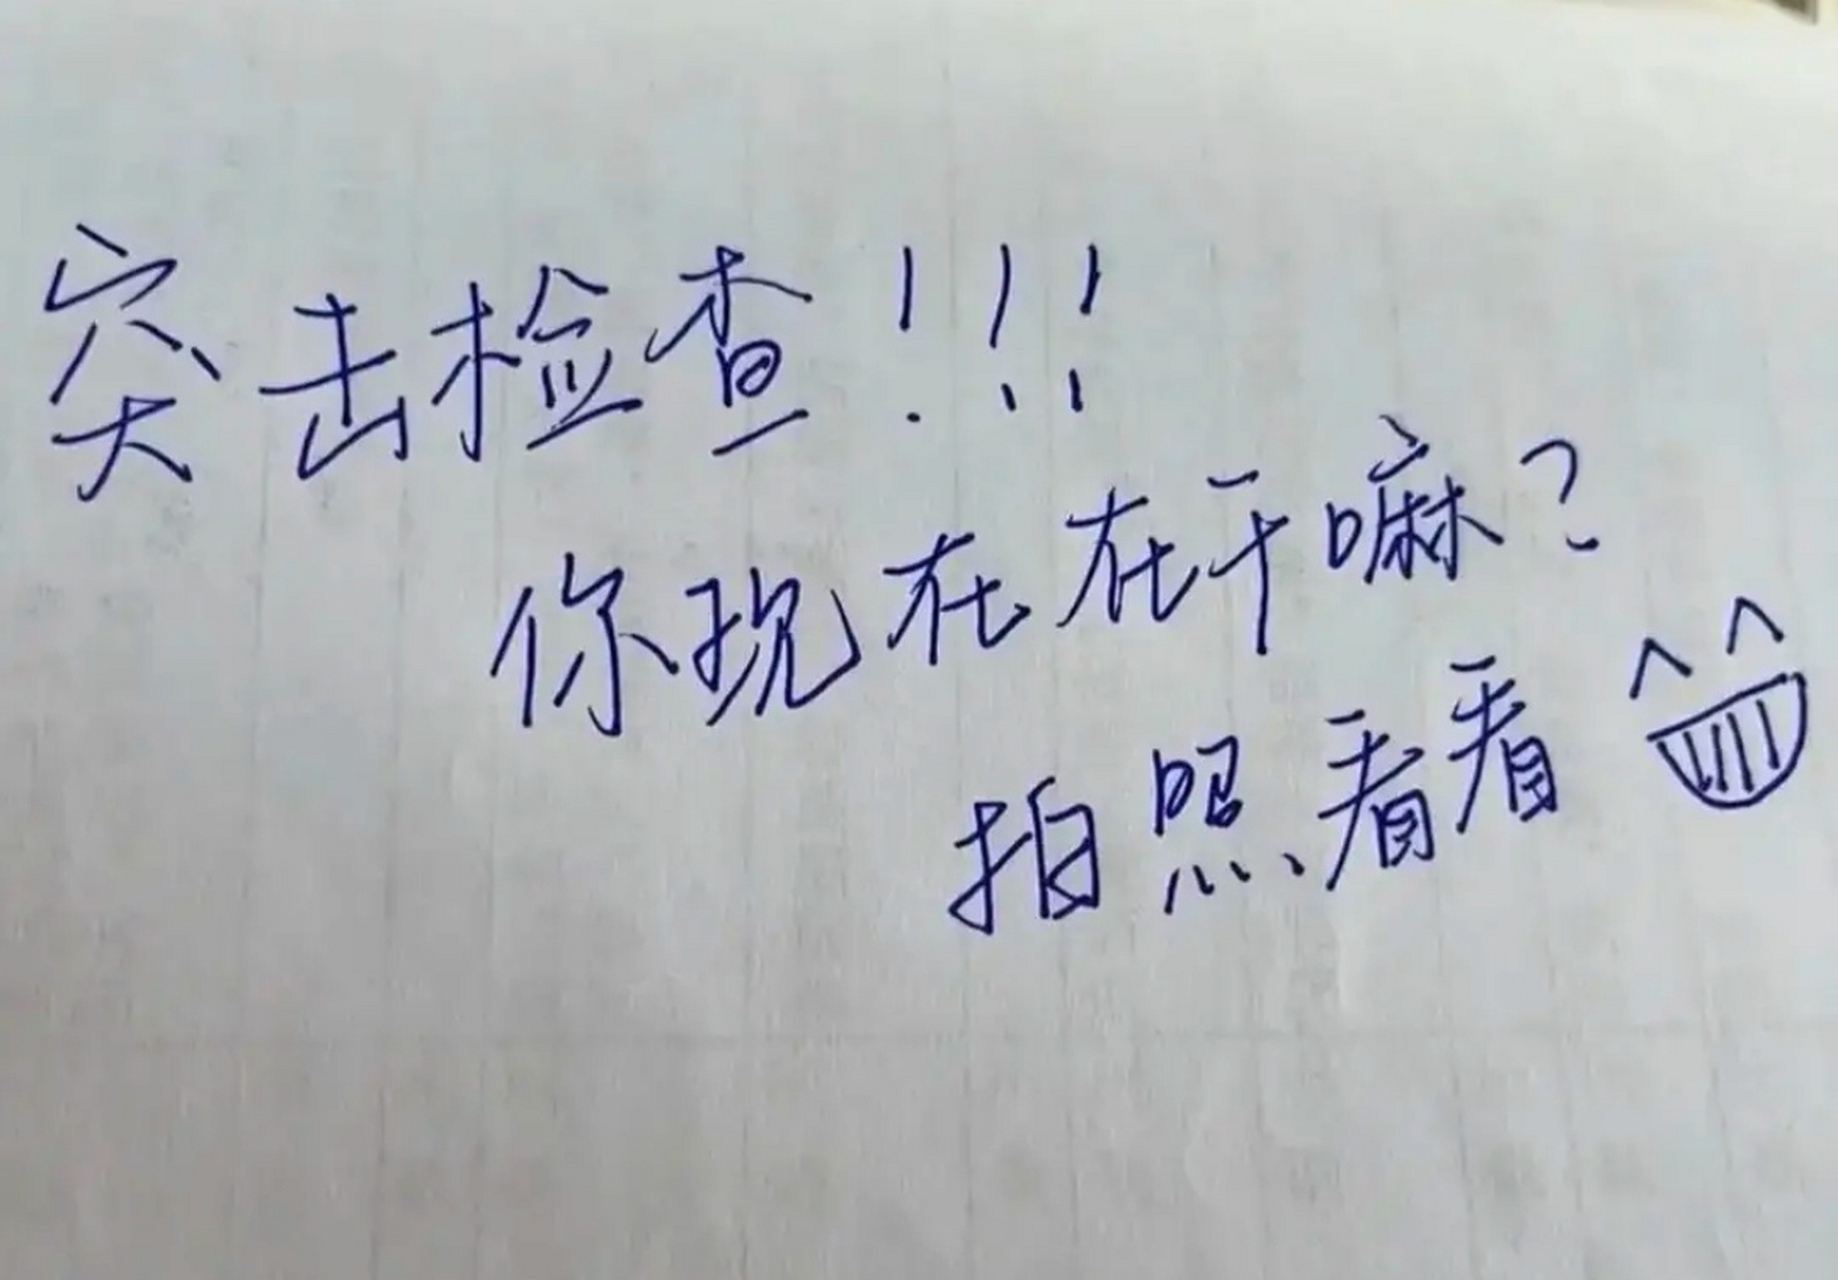 突击检查!!!
你现在在干嘛?
拍照看看